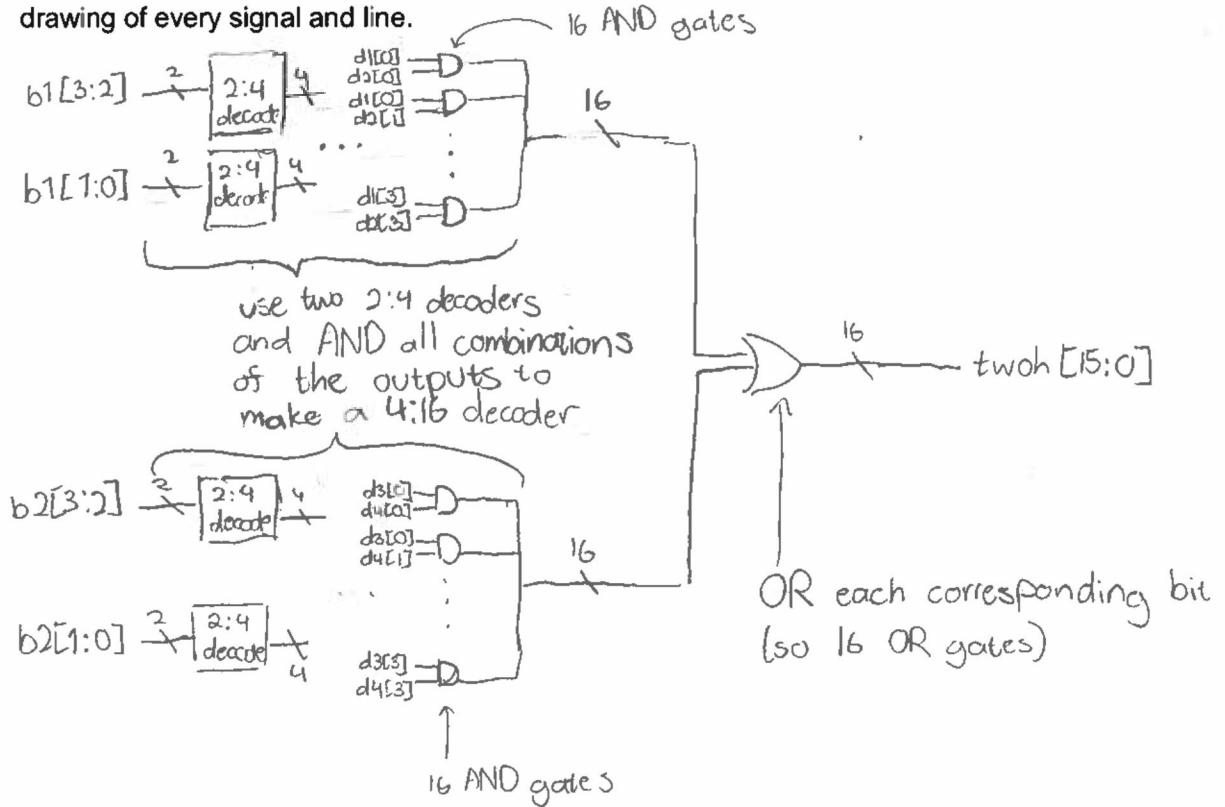 drawing of every signal and line.
16 AND gates
b1[3:2]
2
2:4
decode
4
d1[0]
d2[0]
d1[0]
d2[1]
16
b1[1:0]
2
2:4
decode
4
...
d1[3]
d2[3]
use two 2:4 decoders
and AND all combinations
of the outputs to
make a 4:16 decoder
16
twoh [15:0]
b2[3:2]
2
2:4
decode
4
d3[0]
d4[0]
d3[0]
d4[1]
16
b2[1:0]
2
2:4
decode
4
d3[3]
d4[3]
OR each corresponding bit
(so 16 OR gates)
16 AND gates